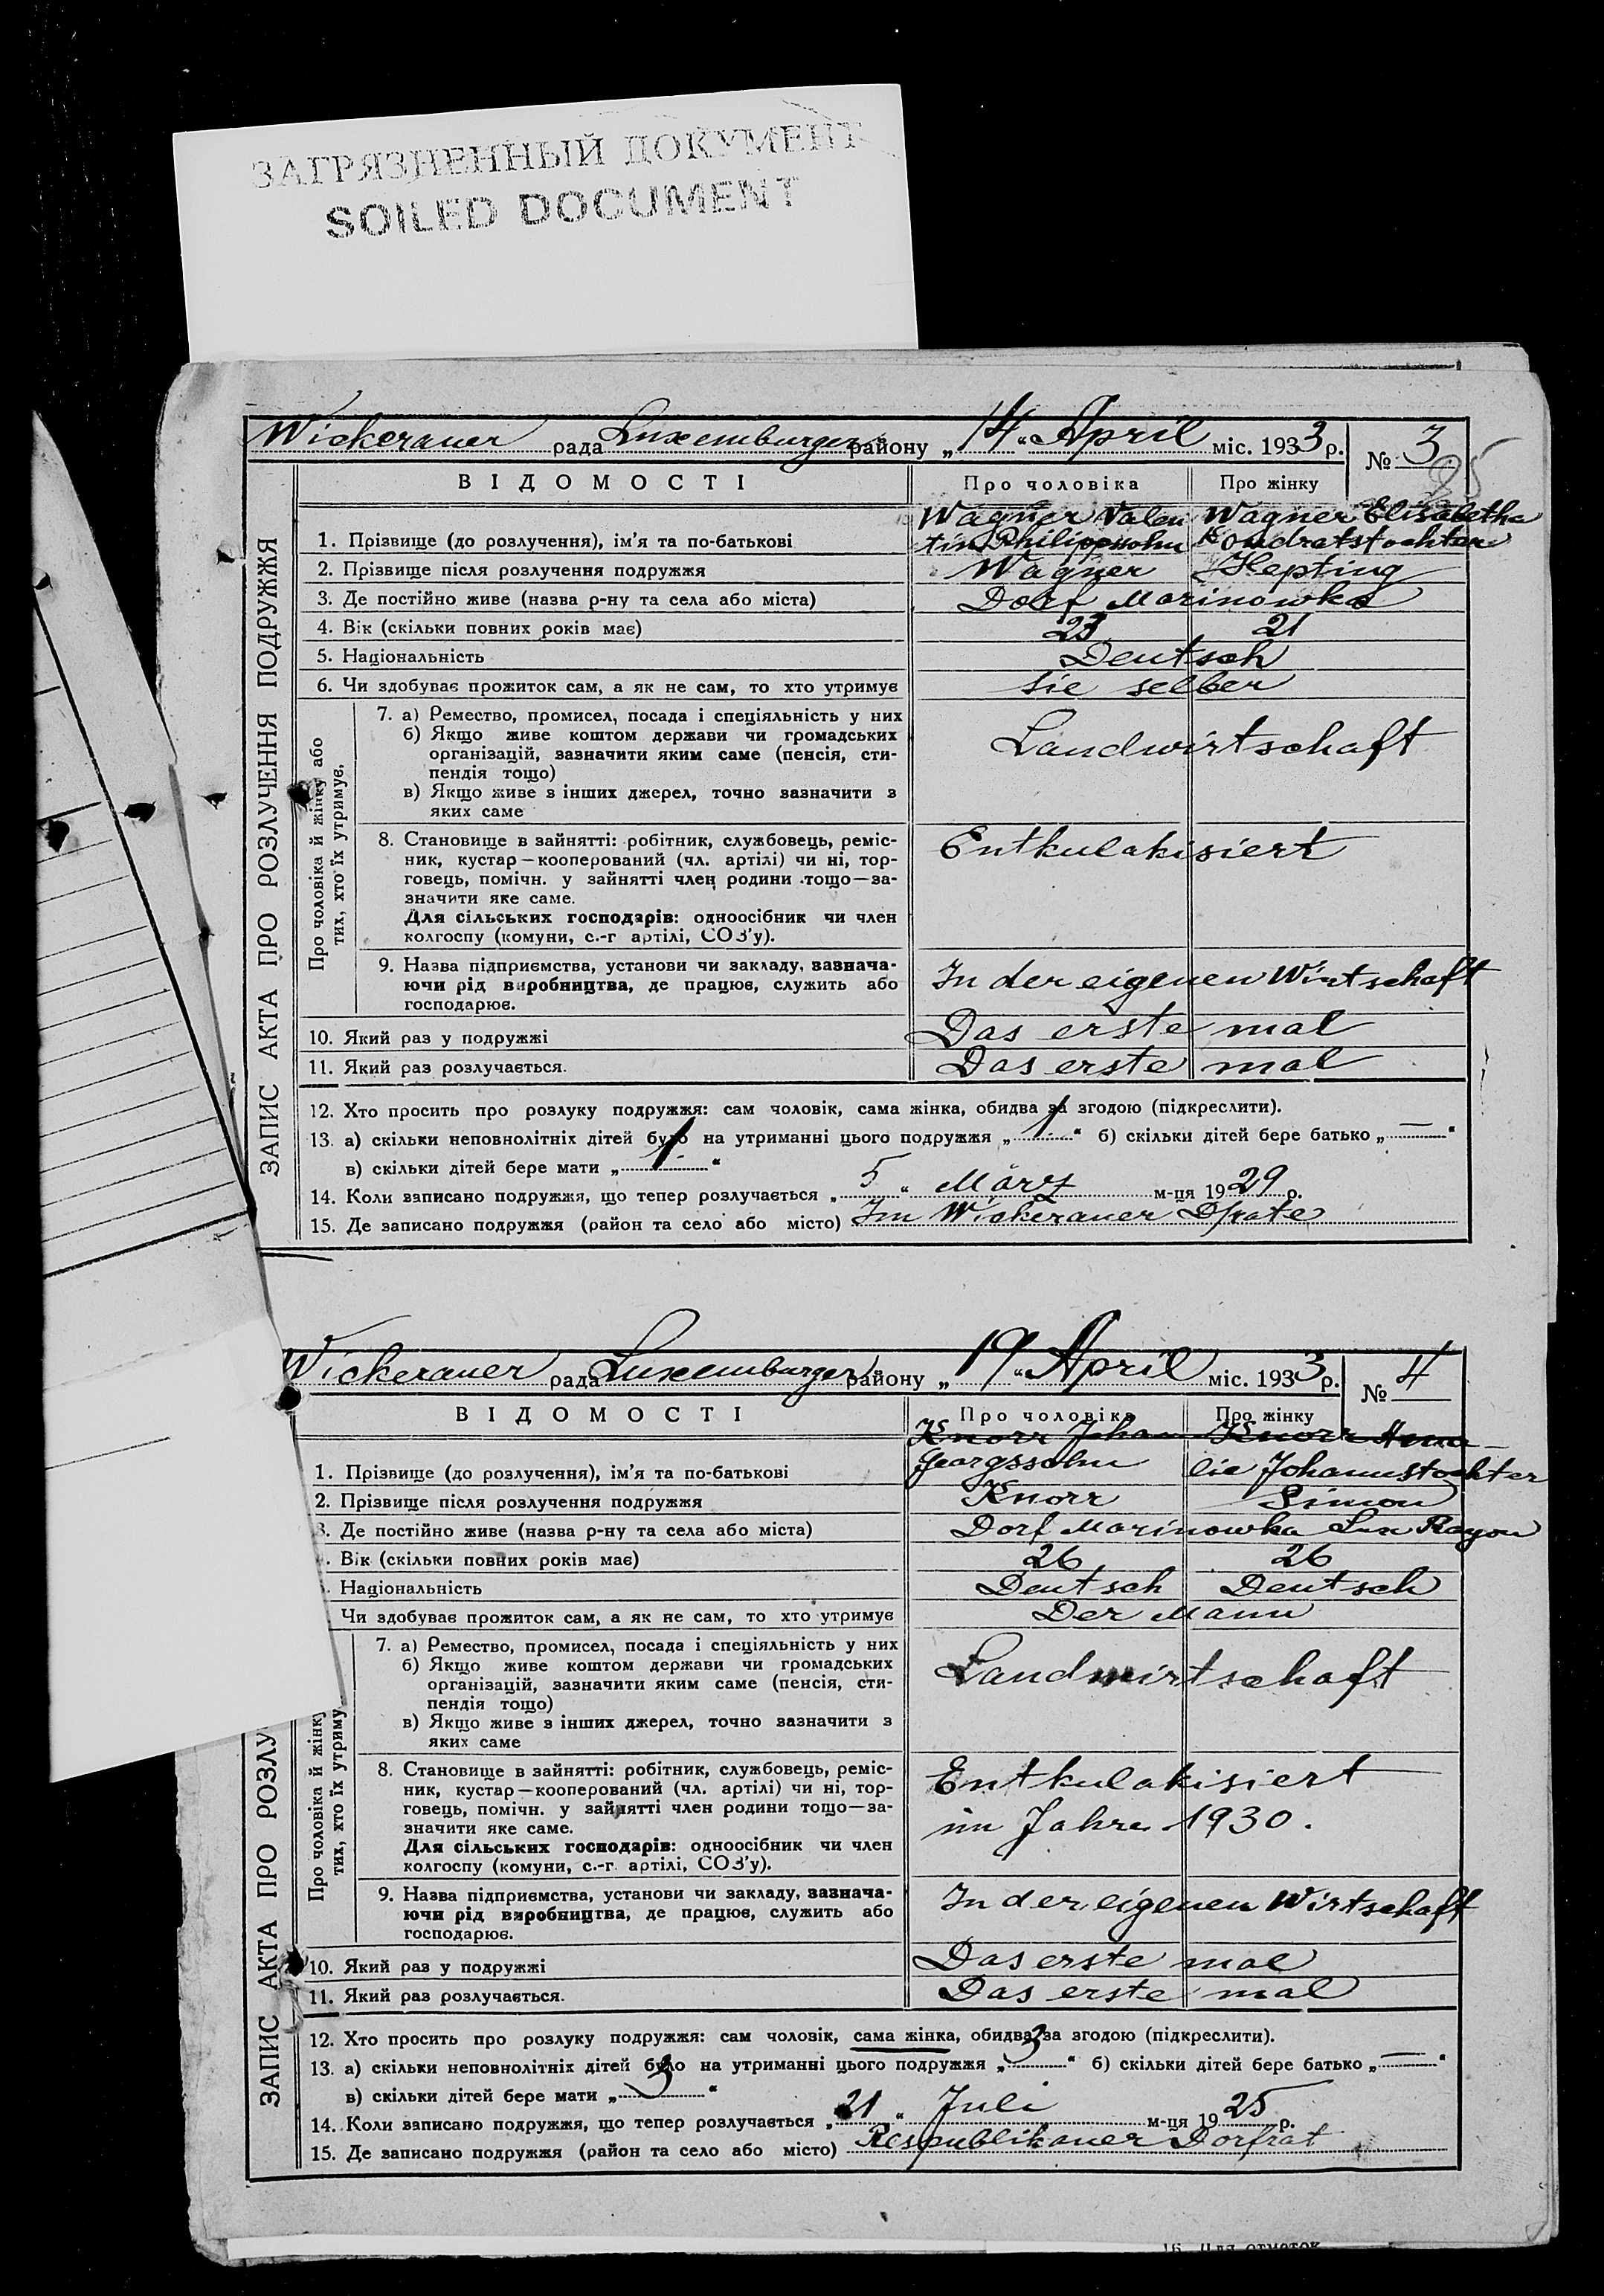 ЗАГРЯЗНЕННЫЙ ДОКУМЕНТ
SOILED DOCUMENT
Wickerauer рада Luxemburger району „14“ April міс. 1933 р. № 3
25
ЗАПИС АКТА ПРО РОЗЛУЧЕННЯ ПОДРУЖЖЯ
ВІДОМОСТІ Про чоловіка Про жінку
Wagner Valen Wagner Elisabetha
1. Прізвище (до розлучення), ім'я та по-батькові tin Philippssohn Kondratstochter
2. Прізвище після розлучення подружжя Wagner Hepting
3. Де постійно живе (назва р-ну та села або міста) Dorf Marinowka
4. Вік (скільки повних років має) 23 21
5. Національність Deutsch
6. Чи здобуває прожиток сам, а як не сам, то хто утримує Sie selber
Про чоловіка й жінку або
тих, хто їх утримує.
7. а) Ремество, промисел, посада і спеціяльність у них
б) Якщо живе коштом держави чи громадських Landwirtschaft
організацій, зазначити яким саме (пенсія, сти-
пендія тощо)
в) Якщо живе з інших джерел, точно зазначити з
яких саме
8. Становище в зайнятті: робітник, службовець, реміс- Entkulakisiert
ник, кустар—кооперований (чл. артілі) чи ні, тор-
говець, помічн. у зайнятті член родини тощо—за-
значити яке саме.
Для сільських господарів: одноосібник чи член
колгоспу (комуни, с.-г артілі, СОЗ'у).
9. Назва підприємства, установи чи закладу, зазнача- In der eigenen Wirtschaft
ючи рід виробництва, де працює, служить або
господарює.
10. Який раз у подружжі Das erste mal
11. Який раз розлучається. Das erste mal
12. Хто просить про розлуку подружжя: сам чоловік, сама жінка, обидва за згодою (підкреслити).
13. а) скільки неповнолітніх дітей було на утриманні цього подружжя „1“ б) скільки дітей бере батько „—“
в) скільки дітей бере мати „1“
14. Коли записано подружжя, що тепер розлучається „5“ März м-ця 1929 р.
15. Де записано подружжя (район та село або місто) Im Wickerauer D/rate
Wickerauer рада Luxemburger району „19“ April міс. 1933 р. № 4
ЗАПИС АКТА ПРО РОЗЛУ
ВІДОМОСТІ Про чоловіка Про жінку
Knorr Johann Knorr Ama-
1. Прізвище (до розлучення), ім'я та по-батькові Georgssohn lie Johannstochter
2. Прізвище після розлучення подружжя Knorr Simon
3. Де постійно живе (назва р-ну та села або міста) Dorf Marinowka Lux Rayon
Вік (скільки повних років має) 26 26
Національність Deutsch Deutsch
Чи здобуває прожиток сам, а як не сам, то хто утримує Der Mann
Про чоловіка й жінку
тих, хто їх утриму
7. а) Ремество, промисел, посада і спеціяльність у них
б) Якщо живе коштом держави чи громадських Landwirtschaft
організацій, зазначити яким саме (пенсія, сти-
пендія тощо)
в) Якщо живе з інших джерел, точно зазначити з
яких саме
8. Становище в зайнятті: робітник, службовець, реміс- Entkulakisiert
ник, кустар—кооперований (чл. артілі) чи ні, тор-
говець, помічн. у зайнятті член родини тощо—за- im Jahre 1930.
значити яке саме.
Для сільських господарів: одноосібник чи член
колгоспу (комуни, с.-г. артілі, СОЗ'у).
9. Назва підприємства, установи чи закладу, зазнача- In der eigenen Wirtschaft
ючи рід виробництва, де працює, служить або
господарює.
10. Який раз у подружжі Das erste mal
11. Який раз розлучається. Das erste mal
12. Хто просить про розлуку подружжя: сам чоловік, сама жінка, обидва за згодою (підкреслити).
13. а) скільки неповнолітніх дітей було на утриманні цього подружжя „3“ б) скільки дітей бере батько „—“
в) скільки дітей бере мати „3“
14. Коли записано подружжя, що тепер розлучається „21“ Juli м-ця 1925 р.
15. Де записано подружжя (район та село або місто) Respublikaner Dorfrat